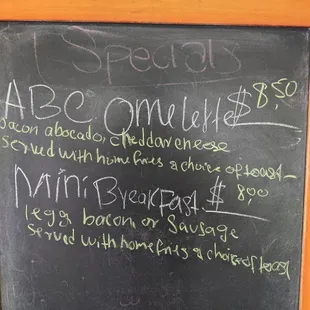 Specials
ABC Omelette $8,50
bacon abocado, cheddar cheese
served with home fries & choice of toast-
mini Breakfast $8,00
1 egg bacon or Sausage
served with home fries & choice of toast